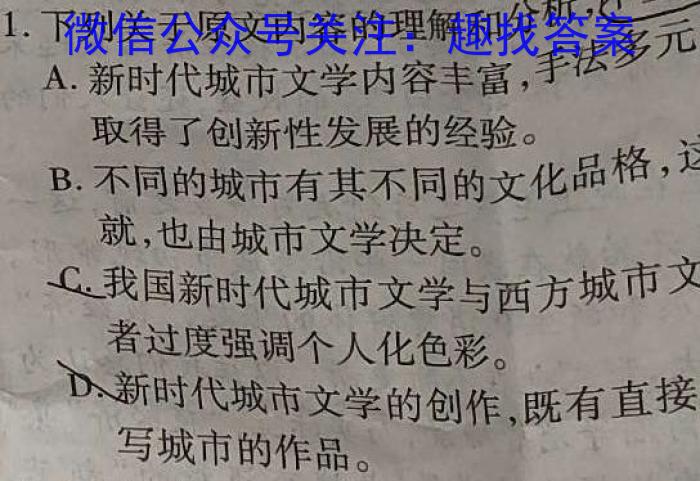 1. 下列关于原文内容的理解和分析,
微信公众号关注:趣找答案
A. 新时代城市文学内容丰富,手法多元
取得了创新性发展的经验。
B. 不同的城市有其不同的文化品格,这
就,也由城市文学决定。
C. 我国新时代城市文学与西方城市文
者过度强调个人化色彩。
D. 新时代城市文学的创作,既有直接
写城市的作品。